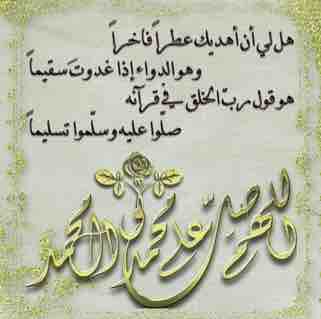 هل لي أن أهديك عطراً فاخراً
وهو الدواء إذا غدوتَ سقيماً
هو قول ربّ الخلق في قرآنه
صلّوا عليه وسلّموا تسليماً
اللهم صل على محمد وآل محمد